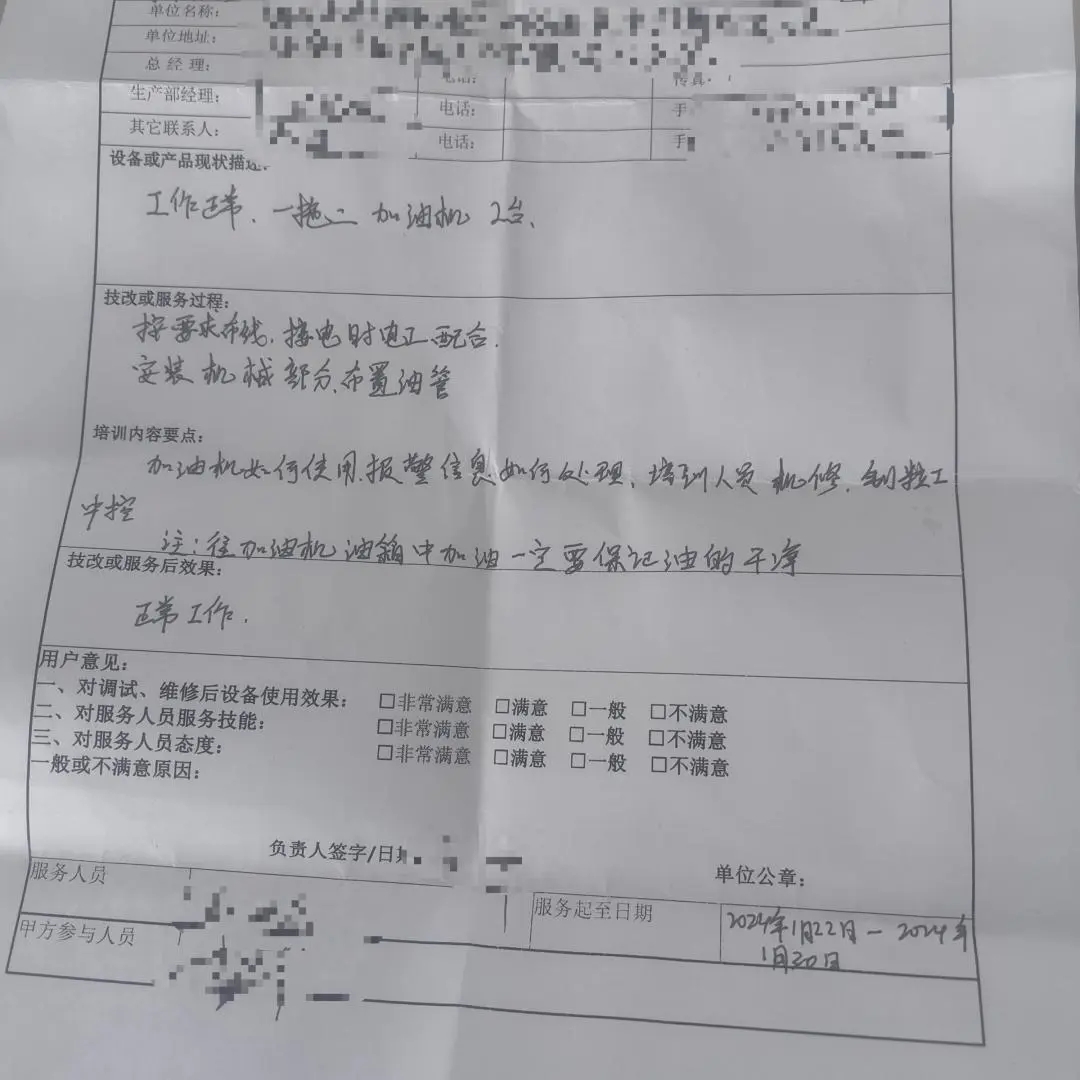 单位名称：
单位地址：
总 经 理： 电话： 传真：
生产部经理： 电话： 手
其它联系人： 电话： 手
设备或产品现状描述：
工作正常、一拖二 加油机 2台、
技改或服务过程：
按要求布线，接电时电工配合．
安装机械部分、布置油管
培训内容要点：
加油机如何使用、报警信息如何处理、培训人员 机修、制粒工
中控
注：往加油机油箱中加油一定要保记油的干净
技改或服务后效果：
正常工作．
用户意见：
一、对调试、维修后设备使用效果： □非常满意 □满意 □一般 □不满意
二、对服务人员服务技能： □非常满意 □满意 □一般 □不满意
三、对服务人员态度： □非常满意 □满意 □一般 □不满意
一般或不满意原因：
负责人签字/日期
单位公章：
服务人员
服务起至日期 2024年1月22日－2024年
1月30日
甲方参与人员